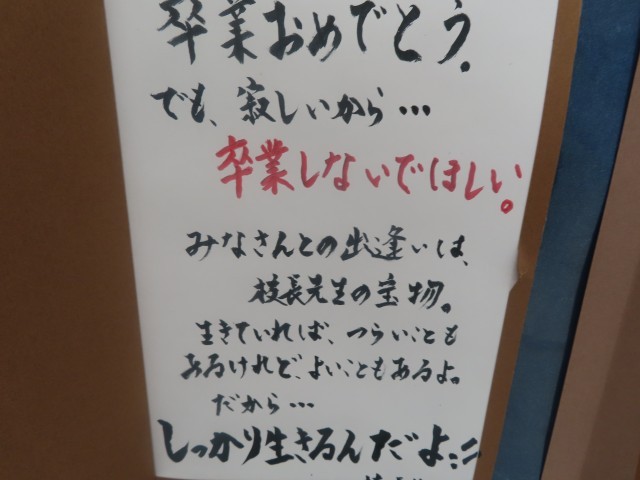 卒業おめでとう。
でも、寂しいから…
卒業しないでほしい。
みなさんとの出逢いは、
校長先生の宝物。
生きていれば、つらいことも
あるけれど、よいこともあるよ。
だから…
しっかり生きるんだよ